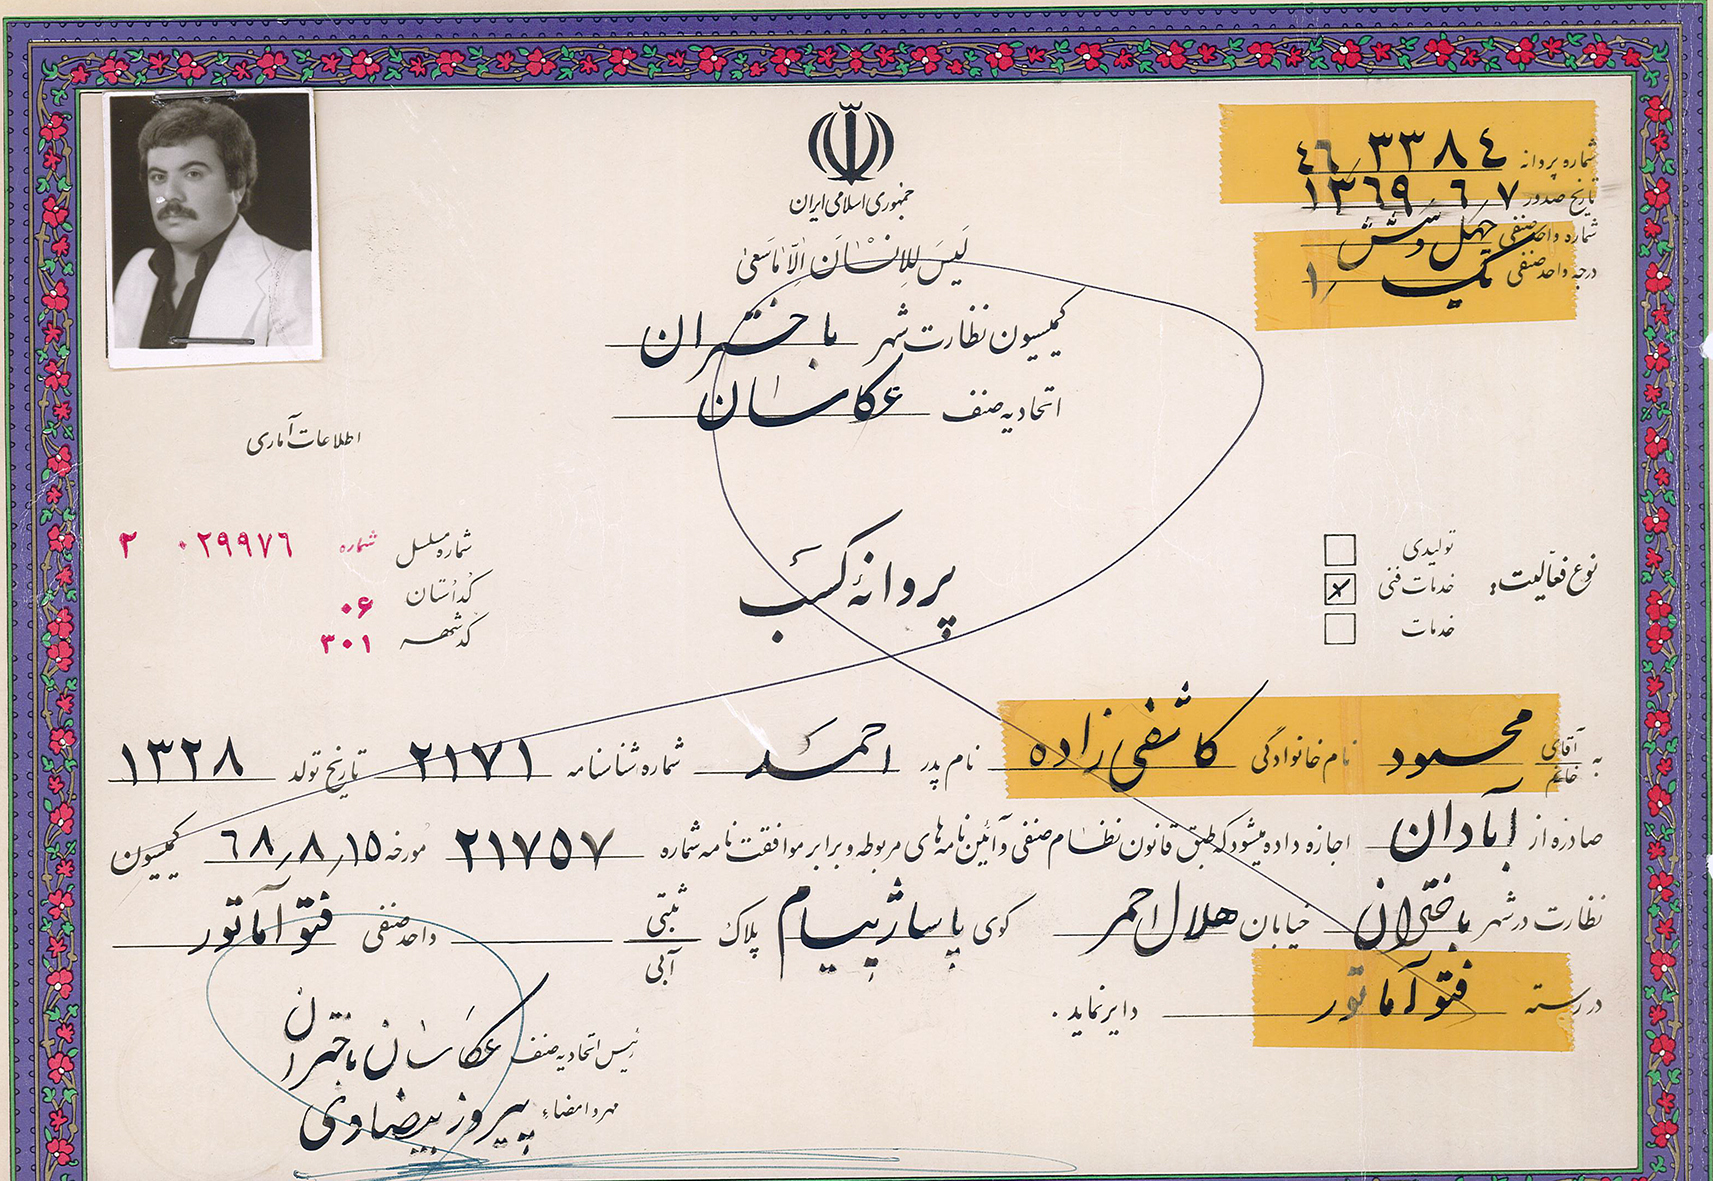 جمهوری اسلامی ایران
لَیسَ لِلاِنسَانِ اِلّا مَاسَعیٰ
شماره پروانه ٣٣٨٤/٤٦
تاریخ صدور ١٣٦٩/٦/٧
شماره واحد صنفی چهل و شش
درجه واحد صنفی یک /١
کمیسیون نظارت شهر باختران
اتحادیه صنف عکاسان
اطلاعات آماری
شماره مسلسل شماره ٠٢٩٩٧٦ ٢
کد استان ٠۶
کد شهر ٣٠١
پروانهٔ کسب
نوع فعالیت:
تولیدی
خدمات فنی
خدمات
به آقای / خانم محمود نام خانوادگی کاشفی زاده نام پدر احمد شماره شناسنامه ٢١٧١ تاریخ تولد ١٣٢٨
صادره از آبادان اجازه داده میشود که طبق قانون نظام صنفی و آئین نامه های مربوطه و برابر موافقت نامه شماره ٢١٧٥٧ مورخه ٦٨/٨/١٥ کمیسیون
نظارت در شهر باختران خیابان هلال احمر کوی پاساژ پیام پلاک ثبتی / آبی واحد صنفی فتو آماتور
در رسته فتو آماتور دایر نماید.
رئیس اتحادیه صنف عکاسان باختران
مهر و امضاء پیروز بیضاوی